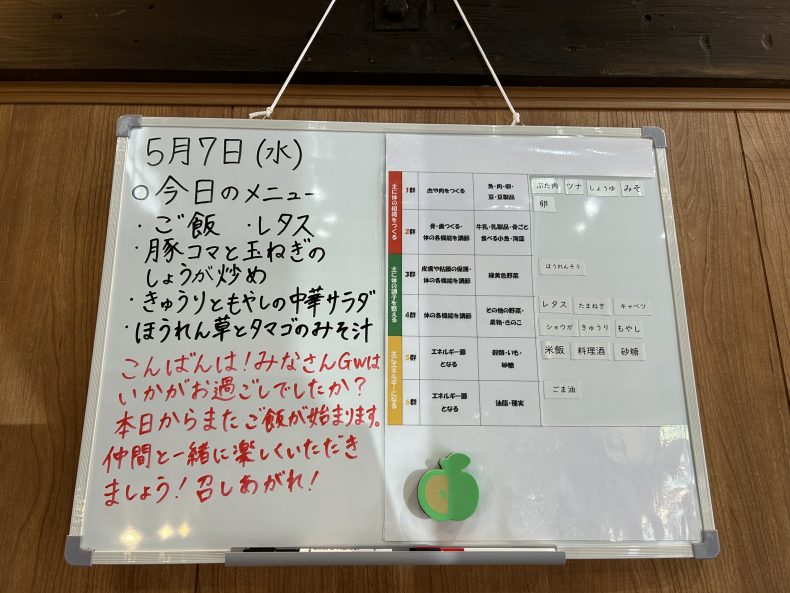 5月7日(水)
○今日のメニュー
・ご飯 ・レタス
・豚コマと玉ねぎの
しょうが炒め
・きゅうりともやしの中華サラダ
・ほうれん草とタマゴのみそ汁
こんばんは!みなさんGWは
いかがお過ごしでしたか?
本日からまたご飯が始まります。
仲間と一緒に楽しくいただき
ましょう!召しあがれ!
主に体の組織をつくる
1群 血や肉をつくる 魚・肉・卵・
豆・豆製品
ぶた肉 ツナ しょうゆ みそ
卵
2群 骨・歯つくる・
体の各機能を調節
牛乳・乳製品・骨ごと
食べる小魚・海藻
主に体の調子を整える
3群 皮膚や粘膜の保護・
体の各機能を調節
緑黄色野菜
ほうれんそう
4群 体の各機能を調節 その他の野菜・
果物・きのこ
レタス たまねぎ キャベツ
ショウガ きゅうり もやし
主にエネルギーになる
5群 エネルギー源
となる
穀類・いも・
砂糖
米飯 料理酒 砂糖
6群 エネルギー源
となる
油脂・種実
ごま油